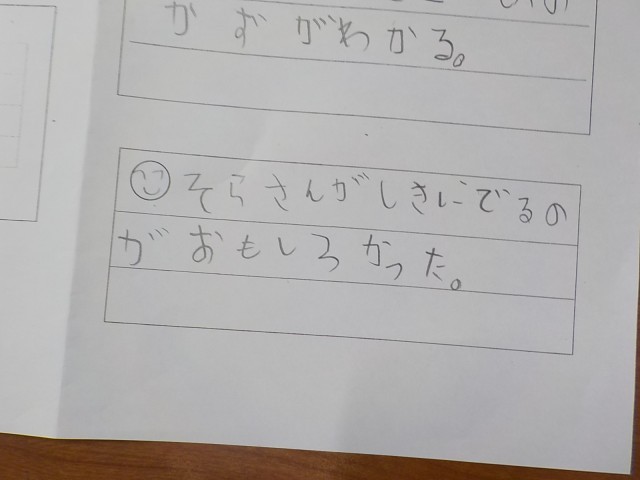 かずがわかる。
そらさんがしきにでるの
がおもしろかった。